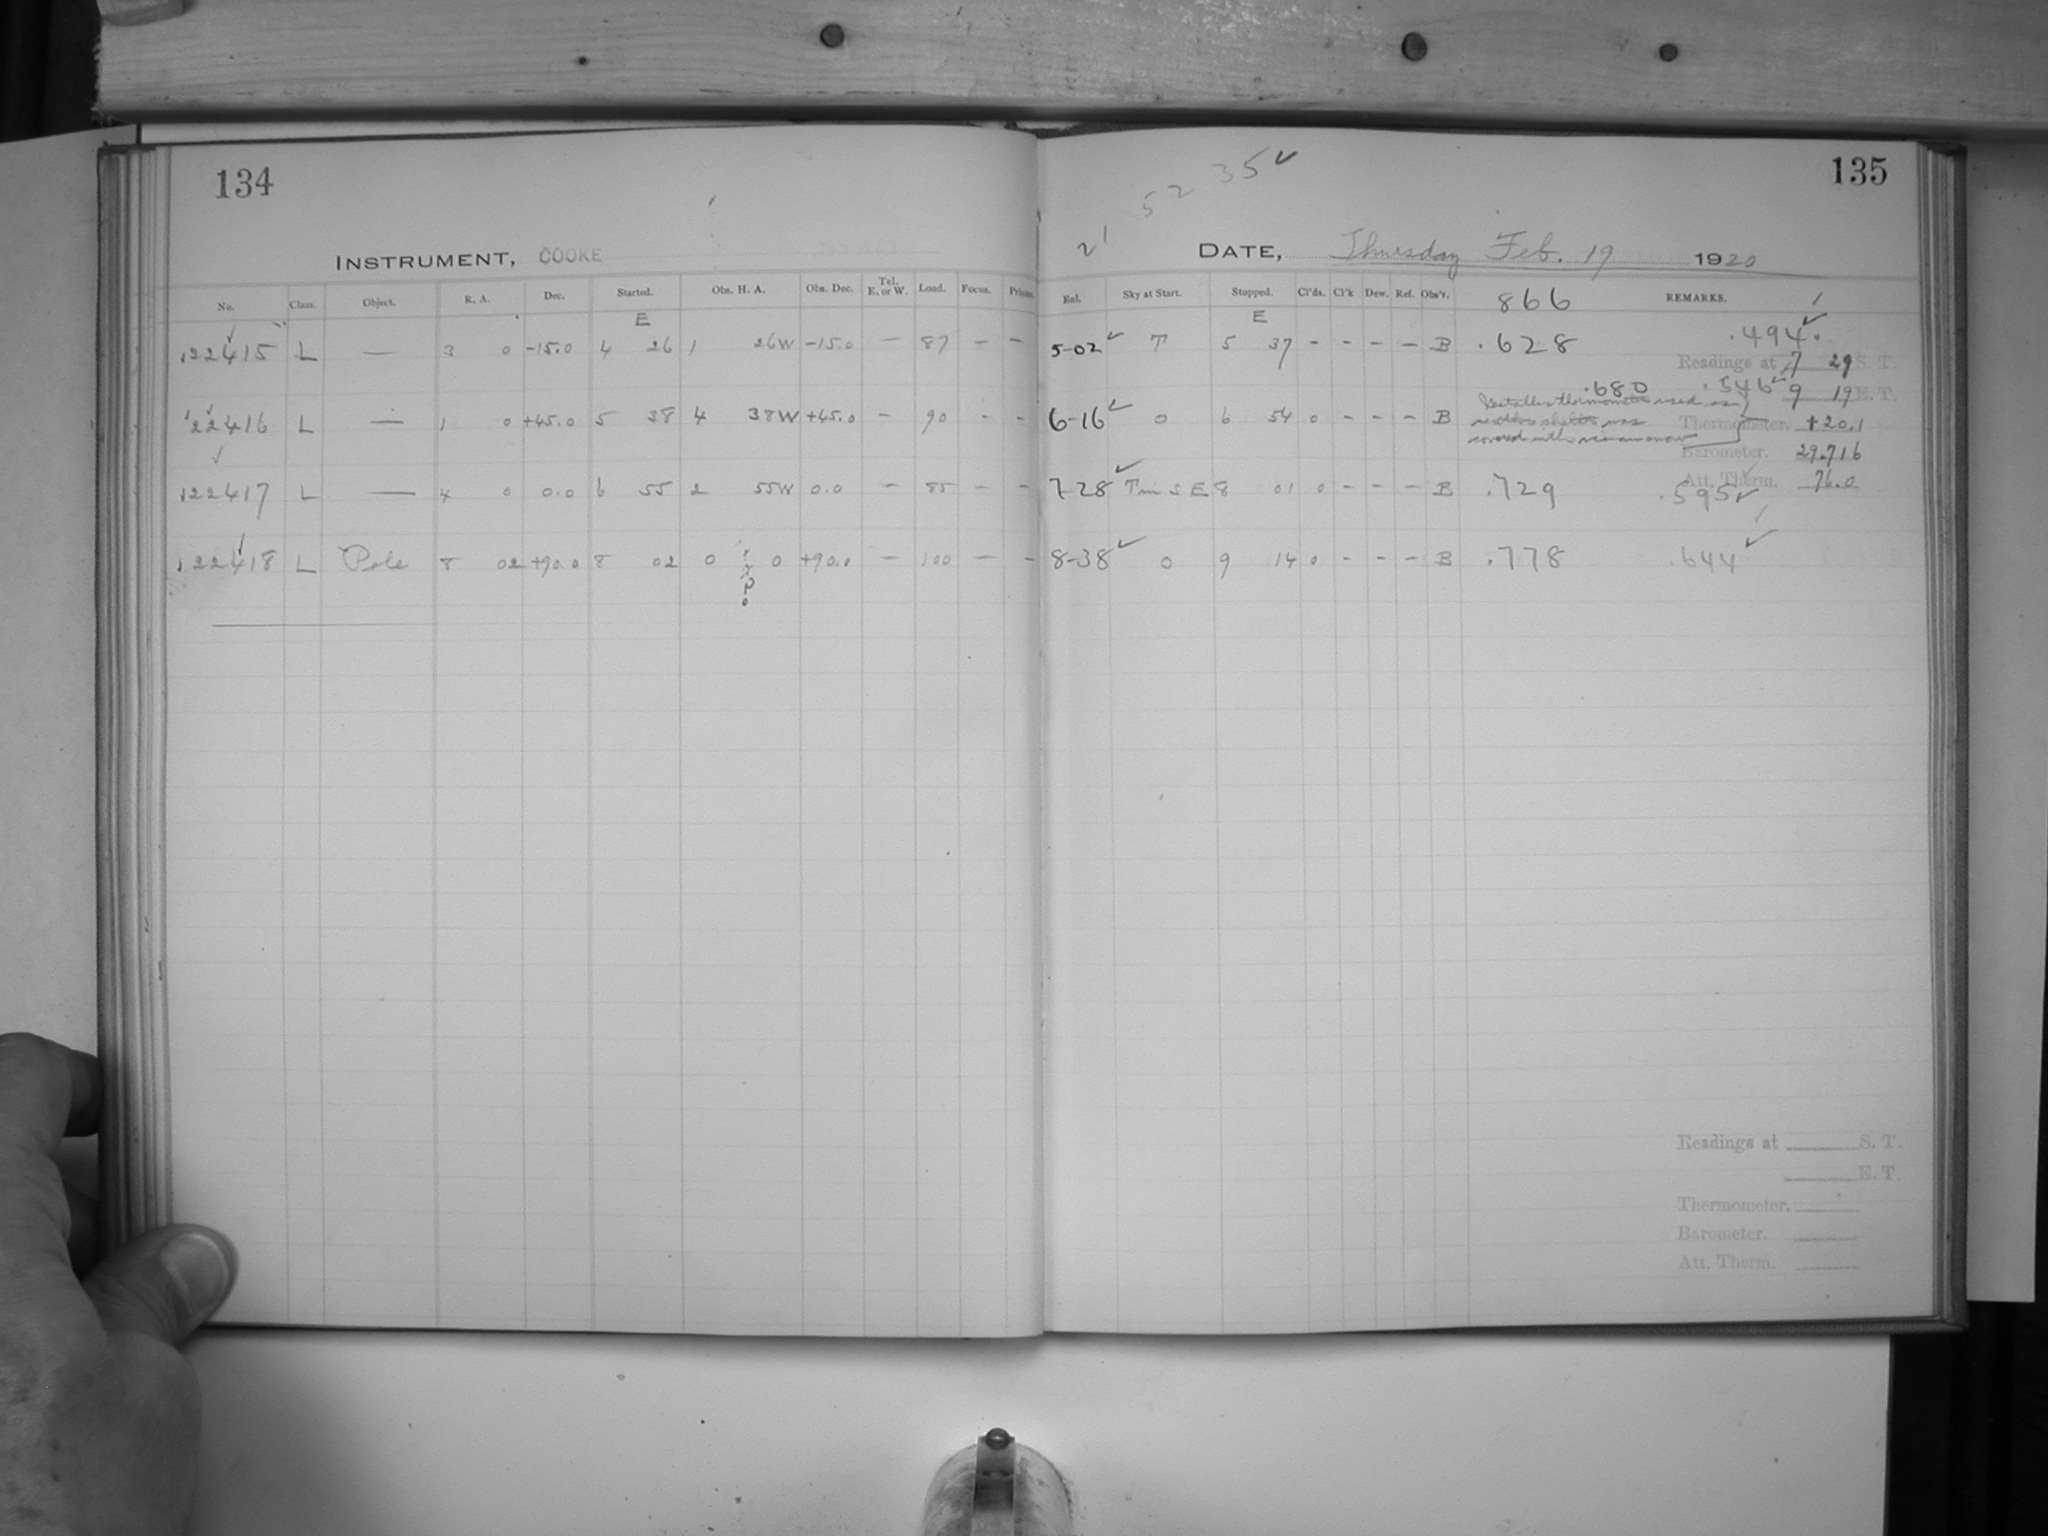 134
INSTRUMENT, COOKE
No. Class. Object. R. A. Dec. Started. Obs. H. A. Obs. Dec. Tel. E. or W. Load. Focus.
E
22415 L — 3 0 -15.0 4 26 1 26W -15.0 — 87 - -
22416 L — 1 0 +45.0 5 38 4 38W +45.0 - 90 - -
22417 L — 4 0 0.0 6 55 2 55W 0.0 - 85 - -
22418 L Pole 8 02 +90.0 8 02 0 0 +90.0 - 100 - -
135
21 52 35 ✓
DATE, Thursday Feb. 19 1920
Sky at Start. Stopped. Cl'ds. Cl'k Dew. Ref. Obs'r. 866 REMARKS.
E
5-02 ✓ T 5 37 - - - - B .628 .494 ✓
Readings at 7 29 S. T.
.680 .546 ✓ 9 19 E. T.
6-16 ✓ 0 6 54 0 - - - B thermometer used as
was Thermometer. +20.1
covered with snow
Barometer. 29.716
Att. Therm. 76.0
7-28 ✓ T in S E 8 01 0 - - - B .729 .595 ✓
8-38 ✓ 0 9 14 0 - - - B .778 .644 ✓
Readings at S. T.
E. T.
Thermometer.
Barometer.
Att. Therm.